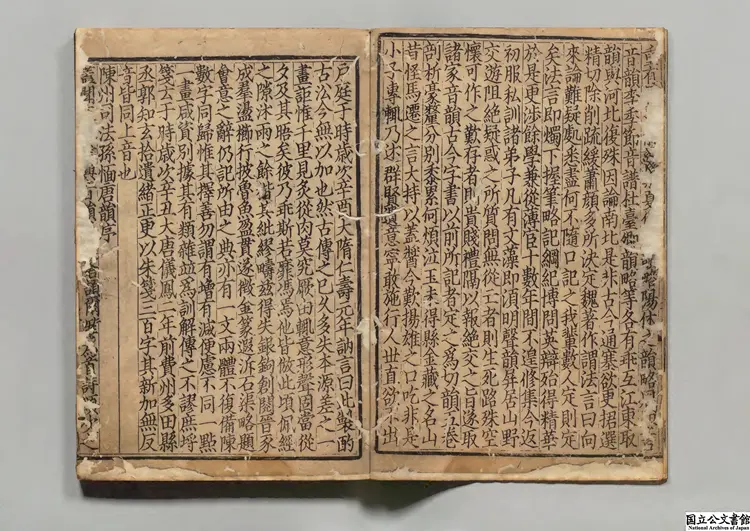 陽休之韻略
音韻李季節音譜杜臺卿韻略等各有乖互江東取
韻與河北復殊因論南北是非古今通塞欲更捃選
精切除削疏緩蕭顏多所決定魏著作謂法言曰向
來論難疑處悉盡何不隨口記之我輩數人定則定
矣法言即燭下握筆略記綱紀博問英辯殆得精華
於是更涉餘學兼從薄宦十數年間不遑修集今返
初服私訓諸弟子凡有文藻即須明聲韻屏居山野
交遊阻絕疑惑之所質問無從亡者則生死路殊空
懷可作之歎存者則貴賤禮隔以報絕交之旨遂取
諸家音韻古今字書以前所記者定之爲切韻五卷
剖析毫氂分別黍累何煩泣玉未得縣金藏之名山
昔怪馬遷之言大持以蓋醬今歎揚雄之口吃非是
小子專輒乃述群賢遺意寧敢施行人世直欲不出
戶庭于時歲次辛酉大隋仁壽元年訥言曰此製酌
古沿今無以加也然古傳之已久多失本源差之一
畫詎惟千里見多從肉莫究厥由輒意形聲固當從
夕及其晤矣彼乃乖斯若靡馮焉他皆倣此頃佩經
之隙沐雨之餘揩其紕繆疇茲得失銀鉤創閱晉豕
成羣盪櫛行披魯魚盈貫遂徵金篆遐泝石渠略題
會意之辭仍記所由之典亦有一文兩體不復備陳
數字同歸惟其擇善勿謂有增有減便慮不同一點
一畫咸資別據其有類雜並爲訓解傳之不謬庶埒
箋云于時歲次辛丑大唐儀鳳二年前費州多田縣
丞郭知玄拾遺緒正更以朱箋三百字其新加無反
音皆同上音也
陳州司法孫愐唐韻序
国立公文書館
National Archives of Japan